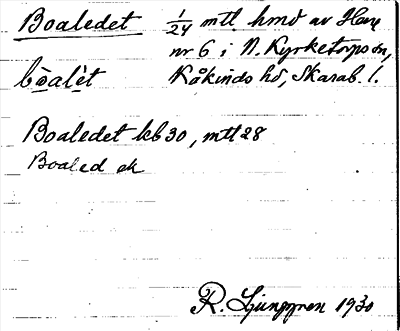 Boaledet 1/24 mtl hmd av Harg
nr 6 i N. Kyrketorps sn,
bòalèt Kåkinds hd, Skarab. l.
Boaledet kb 30, mtl 28
Boaled ek
R. Ljunggren 1930